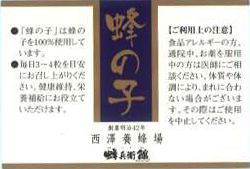 ●「蜂の子」は蜂の
子を100%使用して
います。
●毎日3〜4粒を目安
にお召し上がりくだ
さい。健康維持、栄
養補給にお役立てい
ただけます。
蜂の子
創業明治42年
西澤養蜂場
蜂兵衛館
【ご利用上の注意】
食品アレルギーの方、
通院中、お薬を服用
中の方は医師にご相
談ください。体質や体
調により、まれに合わ
ない場合がございま
す。その際はご使用
を中止してください。